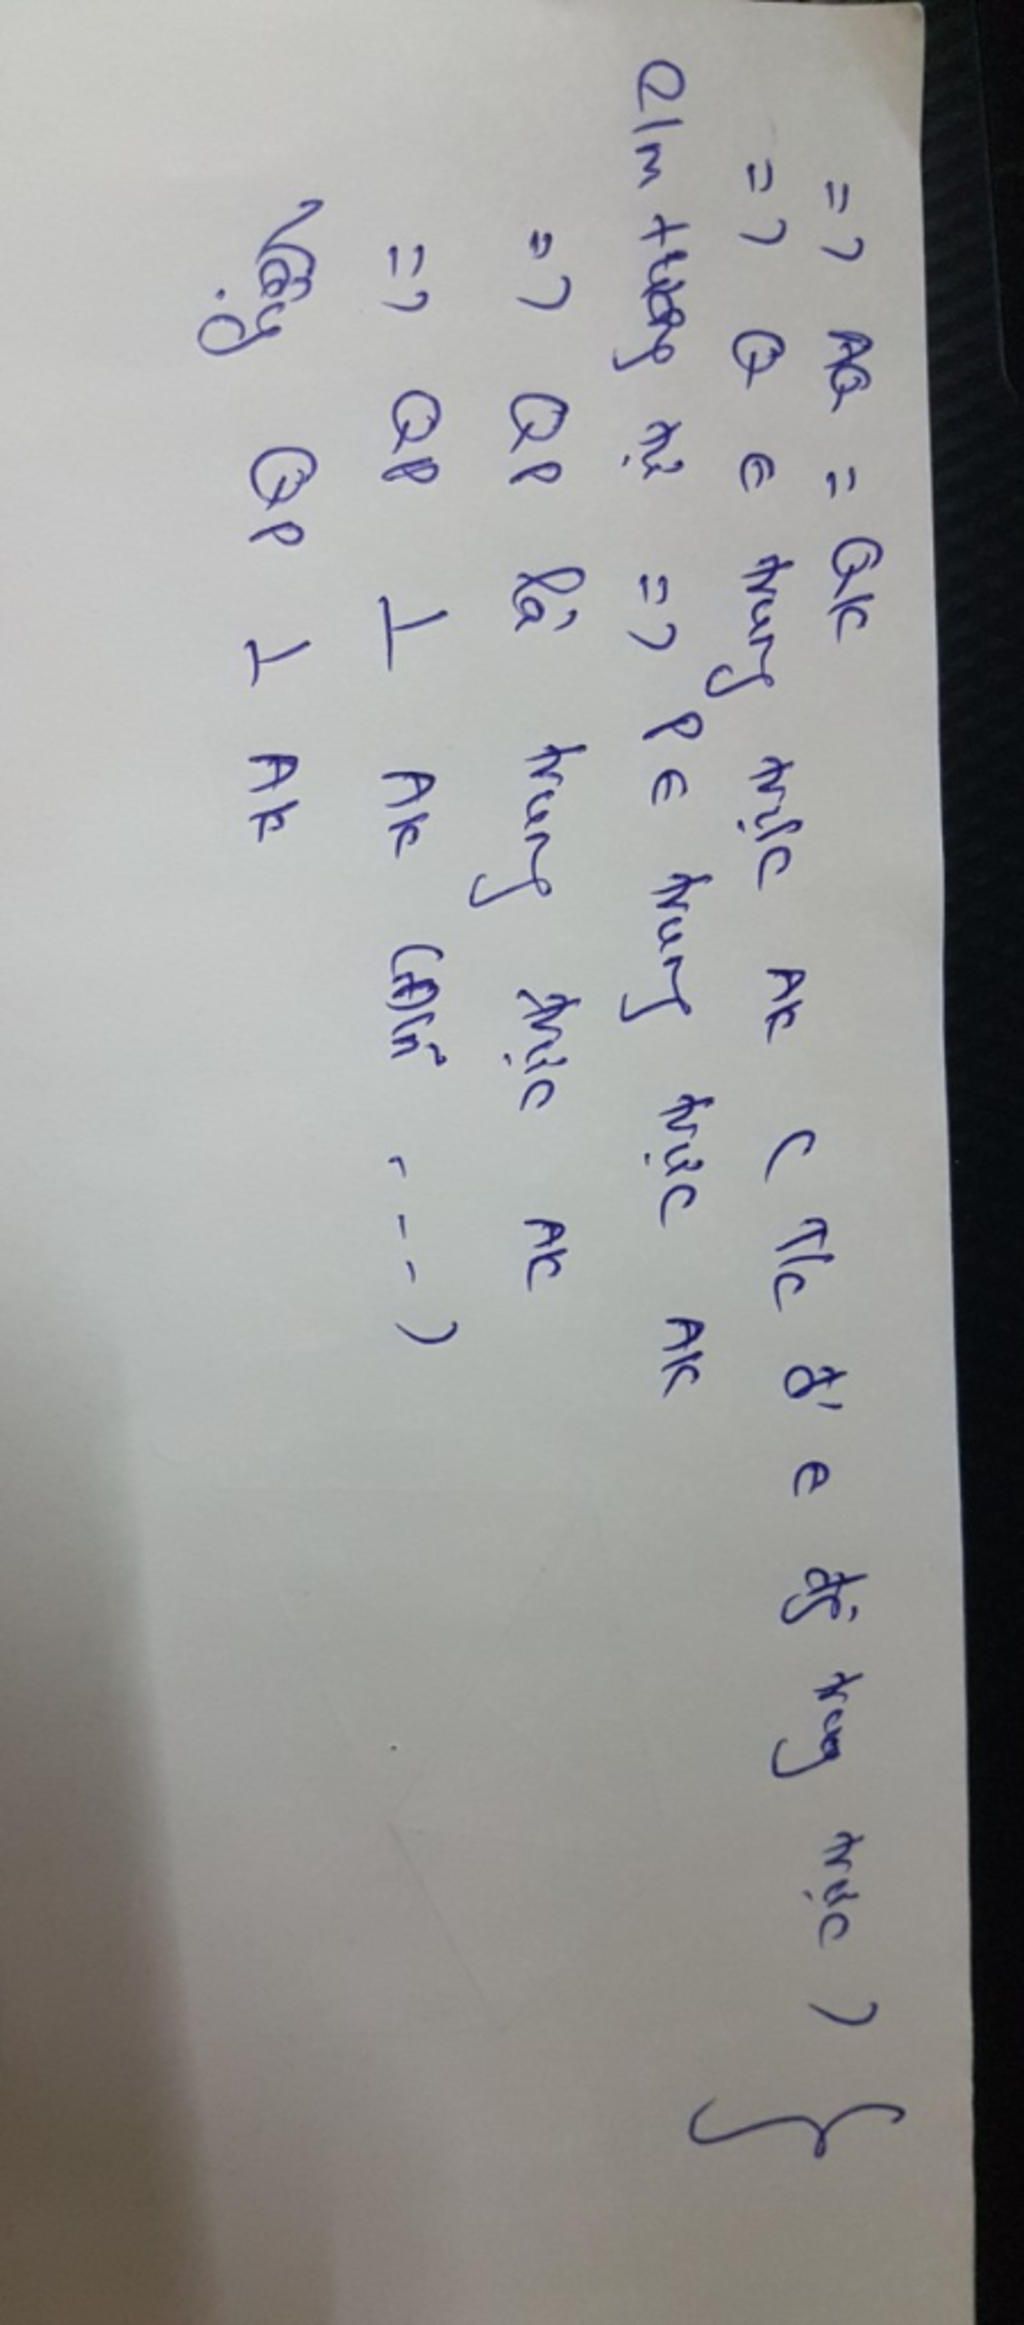 => AQ = QK
=> Q ∈ trung trực AK ( T/c đ' ∈ đg trung trực ) }
C/m tương tự => P ∈ trung trực AK
=> QP là trung trực AK
=> QP ⊥ AK (Đ/n - - - )
Vậy QP ⊥ AK